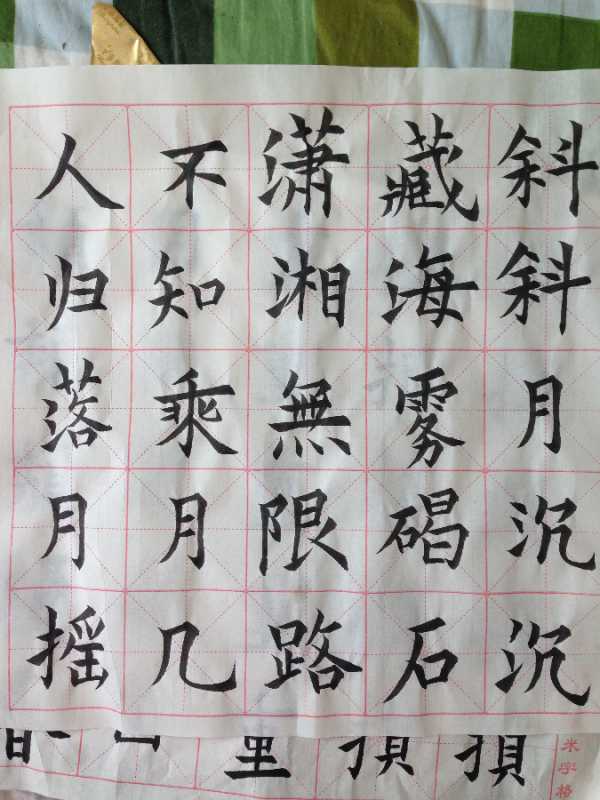 斜斜月沉沉
藏海雾碣石
潇湘無限路
不知乘月几
人归落月摇
米字格